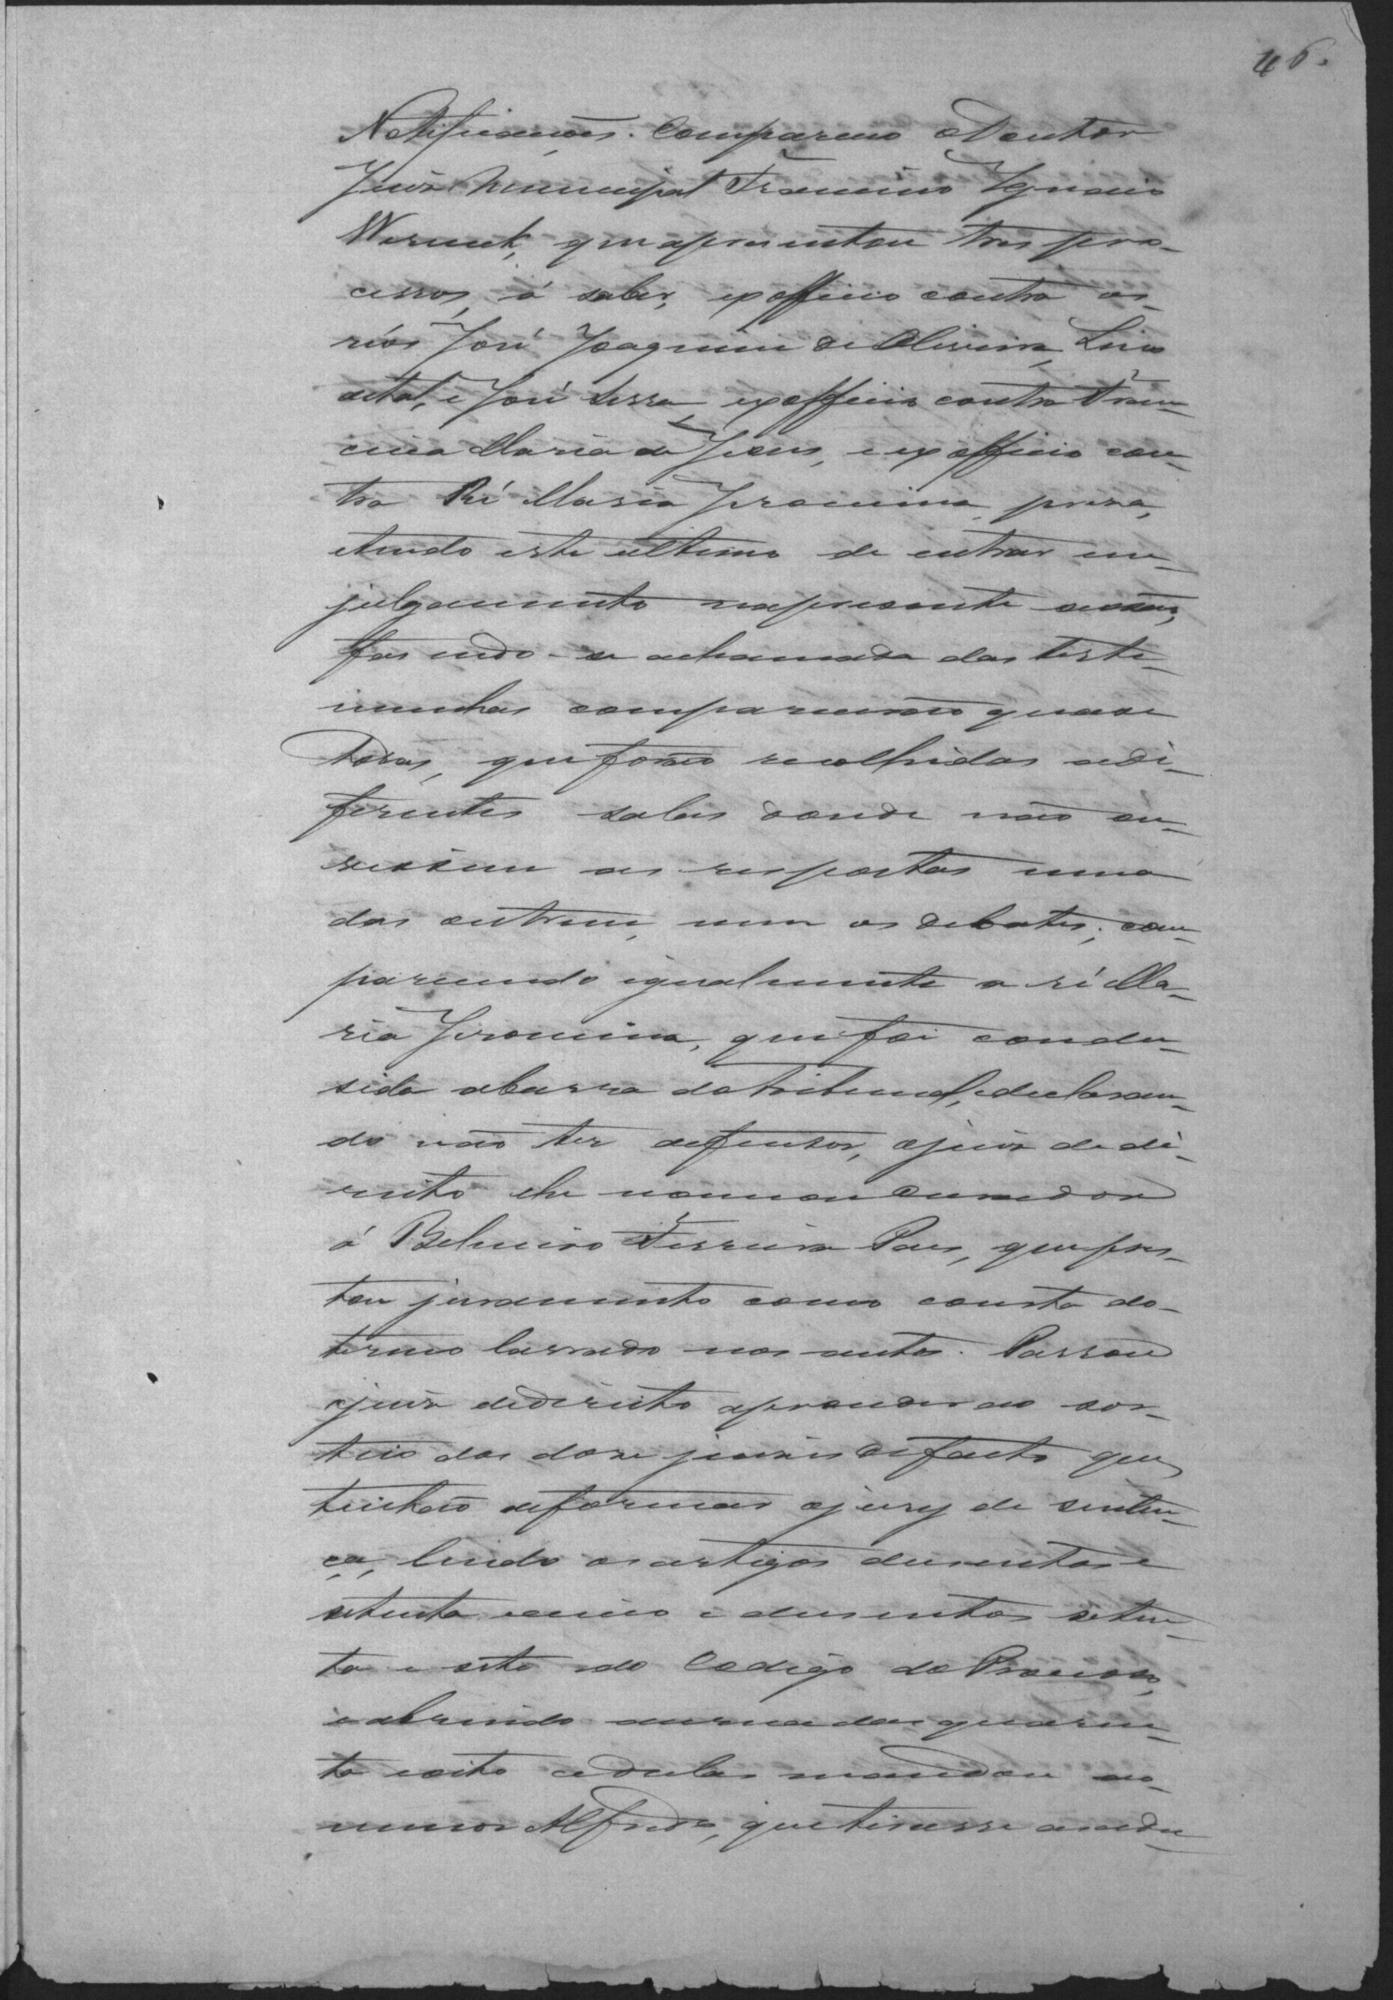 46.
Notificações. Compareceo o Doutor
Juiz Municipal Francisco Ignacio
Werneck, que apresentou tres pro-
cessos, á saber, ex officio contra os
réos José Joaquim de Oliveira, Lino
de tal, e José Lessa, ex officio contra Fran-
cisca Maria de Jesus, e ex officio con-
tra Ré Maria Jeronima, presa,
e tendo este ultimo de entrar em
julgamento na presente sessão,
fasendo-se a chamada das teste-
munhas comparecerão quase
todas, que forão recolhidas a di-
ferentes salas donde não ou-
vissem as respostas uma
das outras, nem os debates; com-
parecendo igualmente a ré Ma-
ria Jeronima, que foi condu-
sida a barra do tribunal, e declaran-
do não ter defensor, o juiz de di-
reito lhe nomeou curador
á Belmiro Ferreira Paes, que pres-
tou juramento como consta do
termo lavrado nos autos. Passou
o juiz de direito a proceder ao sor-
teio dos dose juises de facto que
tinhão de formar o jury de senten-
ça, lendo os artigos dusentos e
setenta e cinco e dusentos seten-
ta e sete do Codigo do Processo,
e abrindo a urna das quaren-
ta e oito cedulas mandou ao
menor Alfredo, que tirasse as cedu-